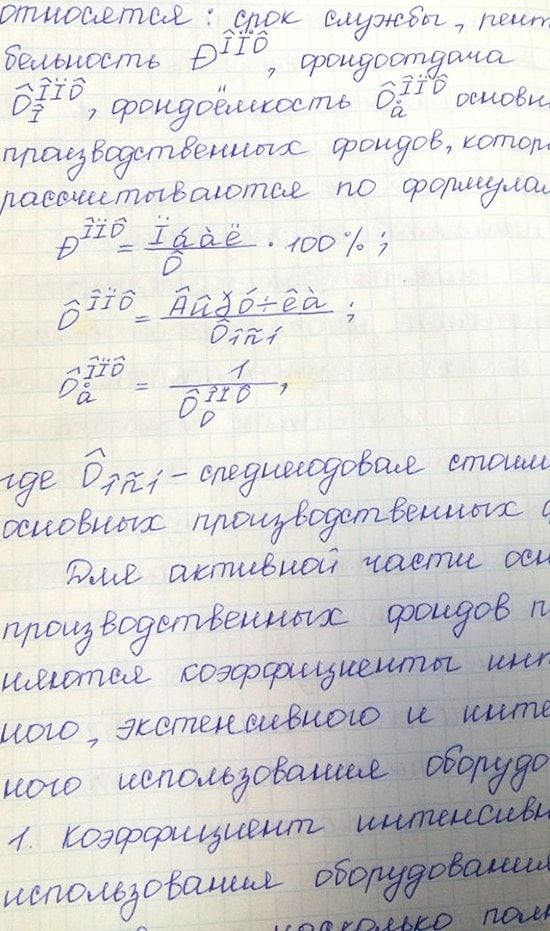 относятся: срок службы, рент
бельность Ð^ÎÏÔ, фондоотдача
Ô_Î^ÎÏÔ, фондоёмкость Ô_å^ÎÏÔ основн
производственных фондов, котор
рассчитываются по формулам
Ð^ÎÏÔ = Ïáàë / Ô · 100%;
Ô^ÎÏÔ = Âûðó÷êà / Ôîñí;
Ô_å^ÎÏÔ = 1 / Ô_O^ÎÏÔ,
где Ôîñí – среднегодовая стоим
основных производственных ф
Для активной части осн
производственных фондов п
няются коэффициенты инт
ного, экстенсивного и инте
ного использования оборудо
1. Коэффициент интенсивн
использования оборудования
насколько полн